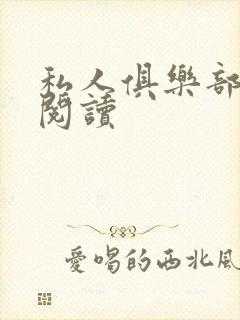 私人俱樂部
閱讀
愛唱的西北風